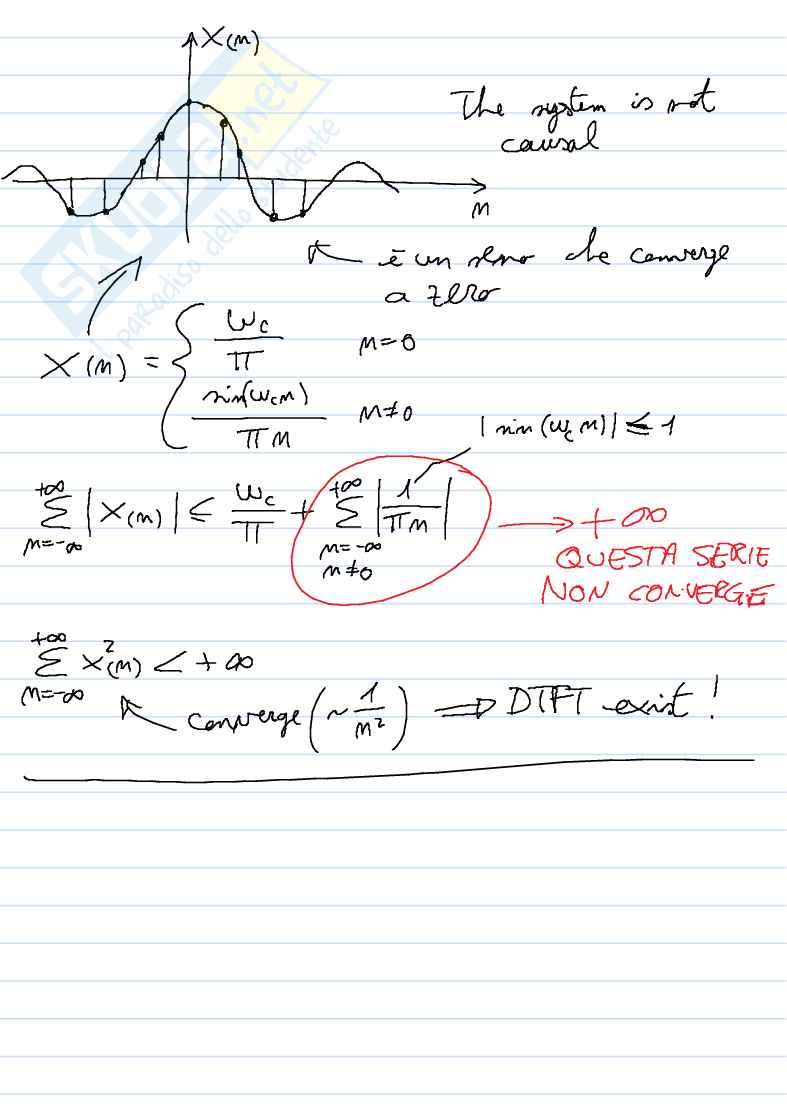 X(n)
The system is not
causal
n
è un seno che converge
a zero
X(n) = { ωc/π n=0
sin(ωcn)/πn n≠0
|sin(ωc n)| ≤ 1
+∞ ∑ n=-∞ |X(n)| ≤ ωc/π + +∞ ∑ n=-∞ n≠0 |1/πn| → +∞
QUESTA SERIE
NON CONVERGE
+∞ ∑ n=-∞ x²(n) < +∞
converge (~ 1/n²) ⇒ DTFT exist!
SKUOLA.net
il paradiso dello studente